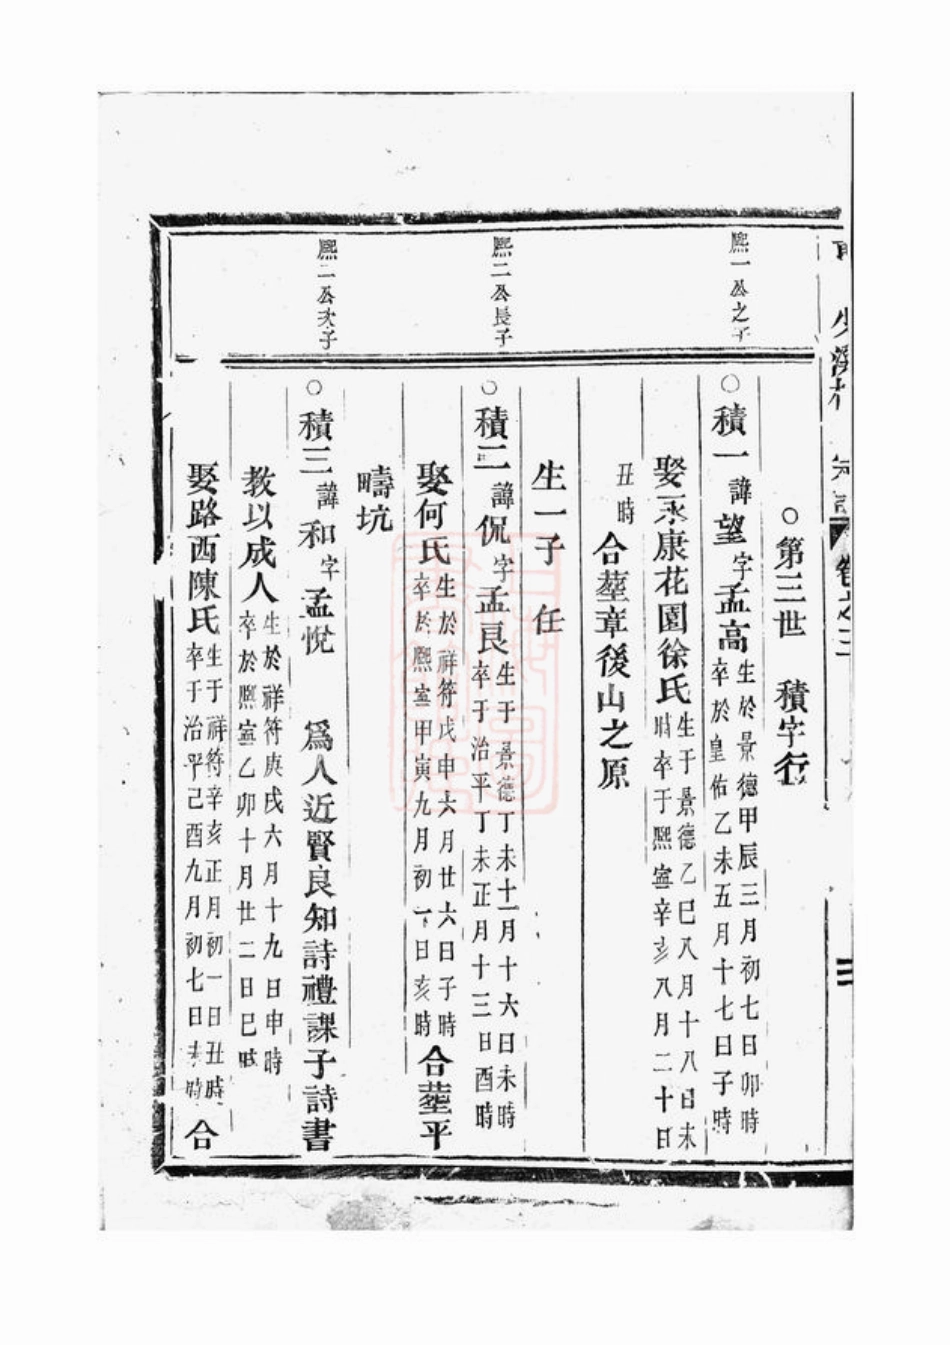 ○第三世　積字行
熙一公之子
○積一諱望字孟高生於景德甲辰三月初七日卯時
卒於皇佑乙未五月十七日子時
娶永康花園徐氏生于景德乙巳八月十八日未
時卒于熙寧辛亥八月二十日
丑時　合塟章後山之原
生一子　任
熙二公長子
○積二諱侃字孟良生于景德丁未十一月十六日未時
卒于治平丁未正月十三日酉時
娶何氏生於祥符戊申六月廿六日子時
卒於熙寧甲寅九月初一日亥時合塟平
疇坑
熙二公次子
○積三諱和字孟悅　爲人近賢良知詩禮課子詩書
教以成人生於祥符庚戌六月十九日申時
卒於熙寧乙卯十月廿二日巳時
娶路西陳氏生于祥符辛亥正月初一日丑時
卒于治平己酉九月初七日未時合